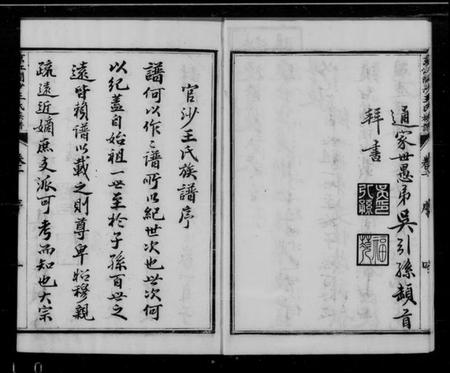 通家世愚弟吳引孫頓首
拜書
官沙王氏族譜序
譜何以作作譜所以紀世次也世次何
以紀蓋自始祖一世至於子孫百世之
遠皆賴譜以載之則尊卑昭穆親
疏遠近嫡庶支派可考而知也大宗